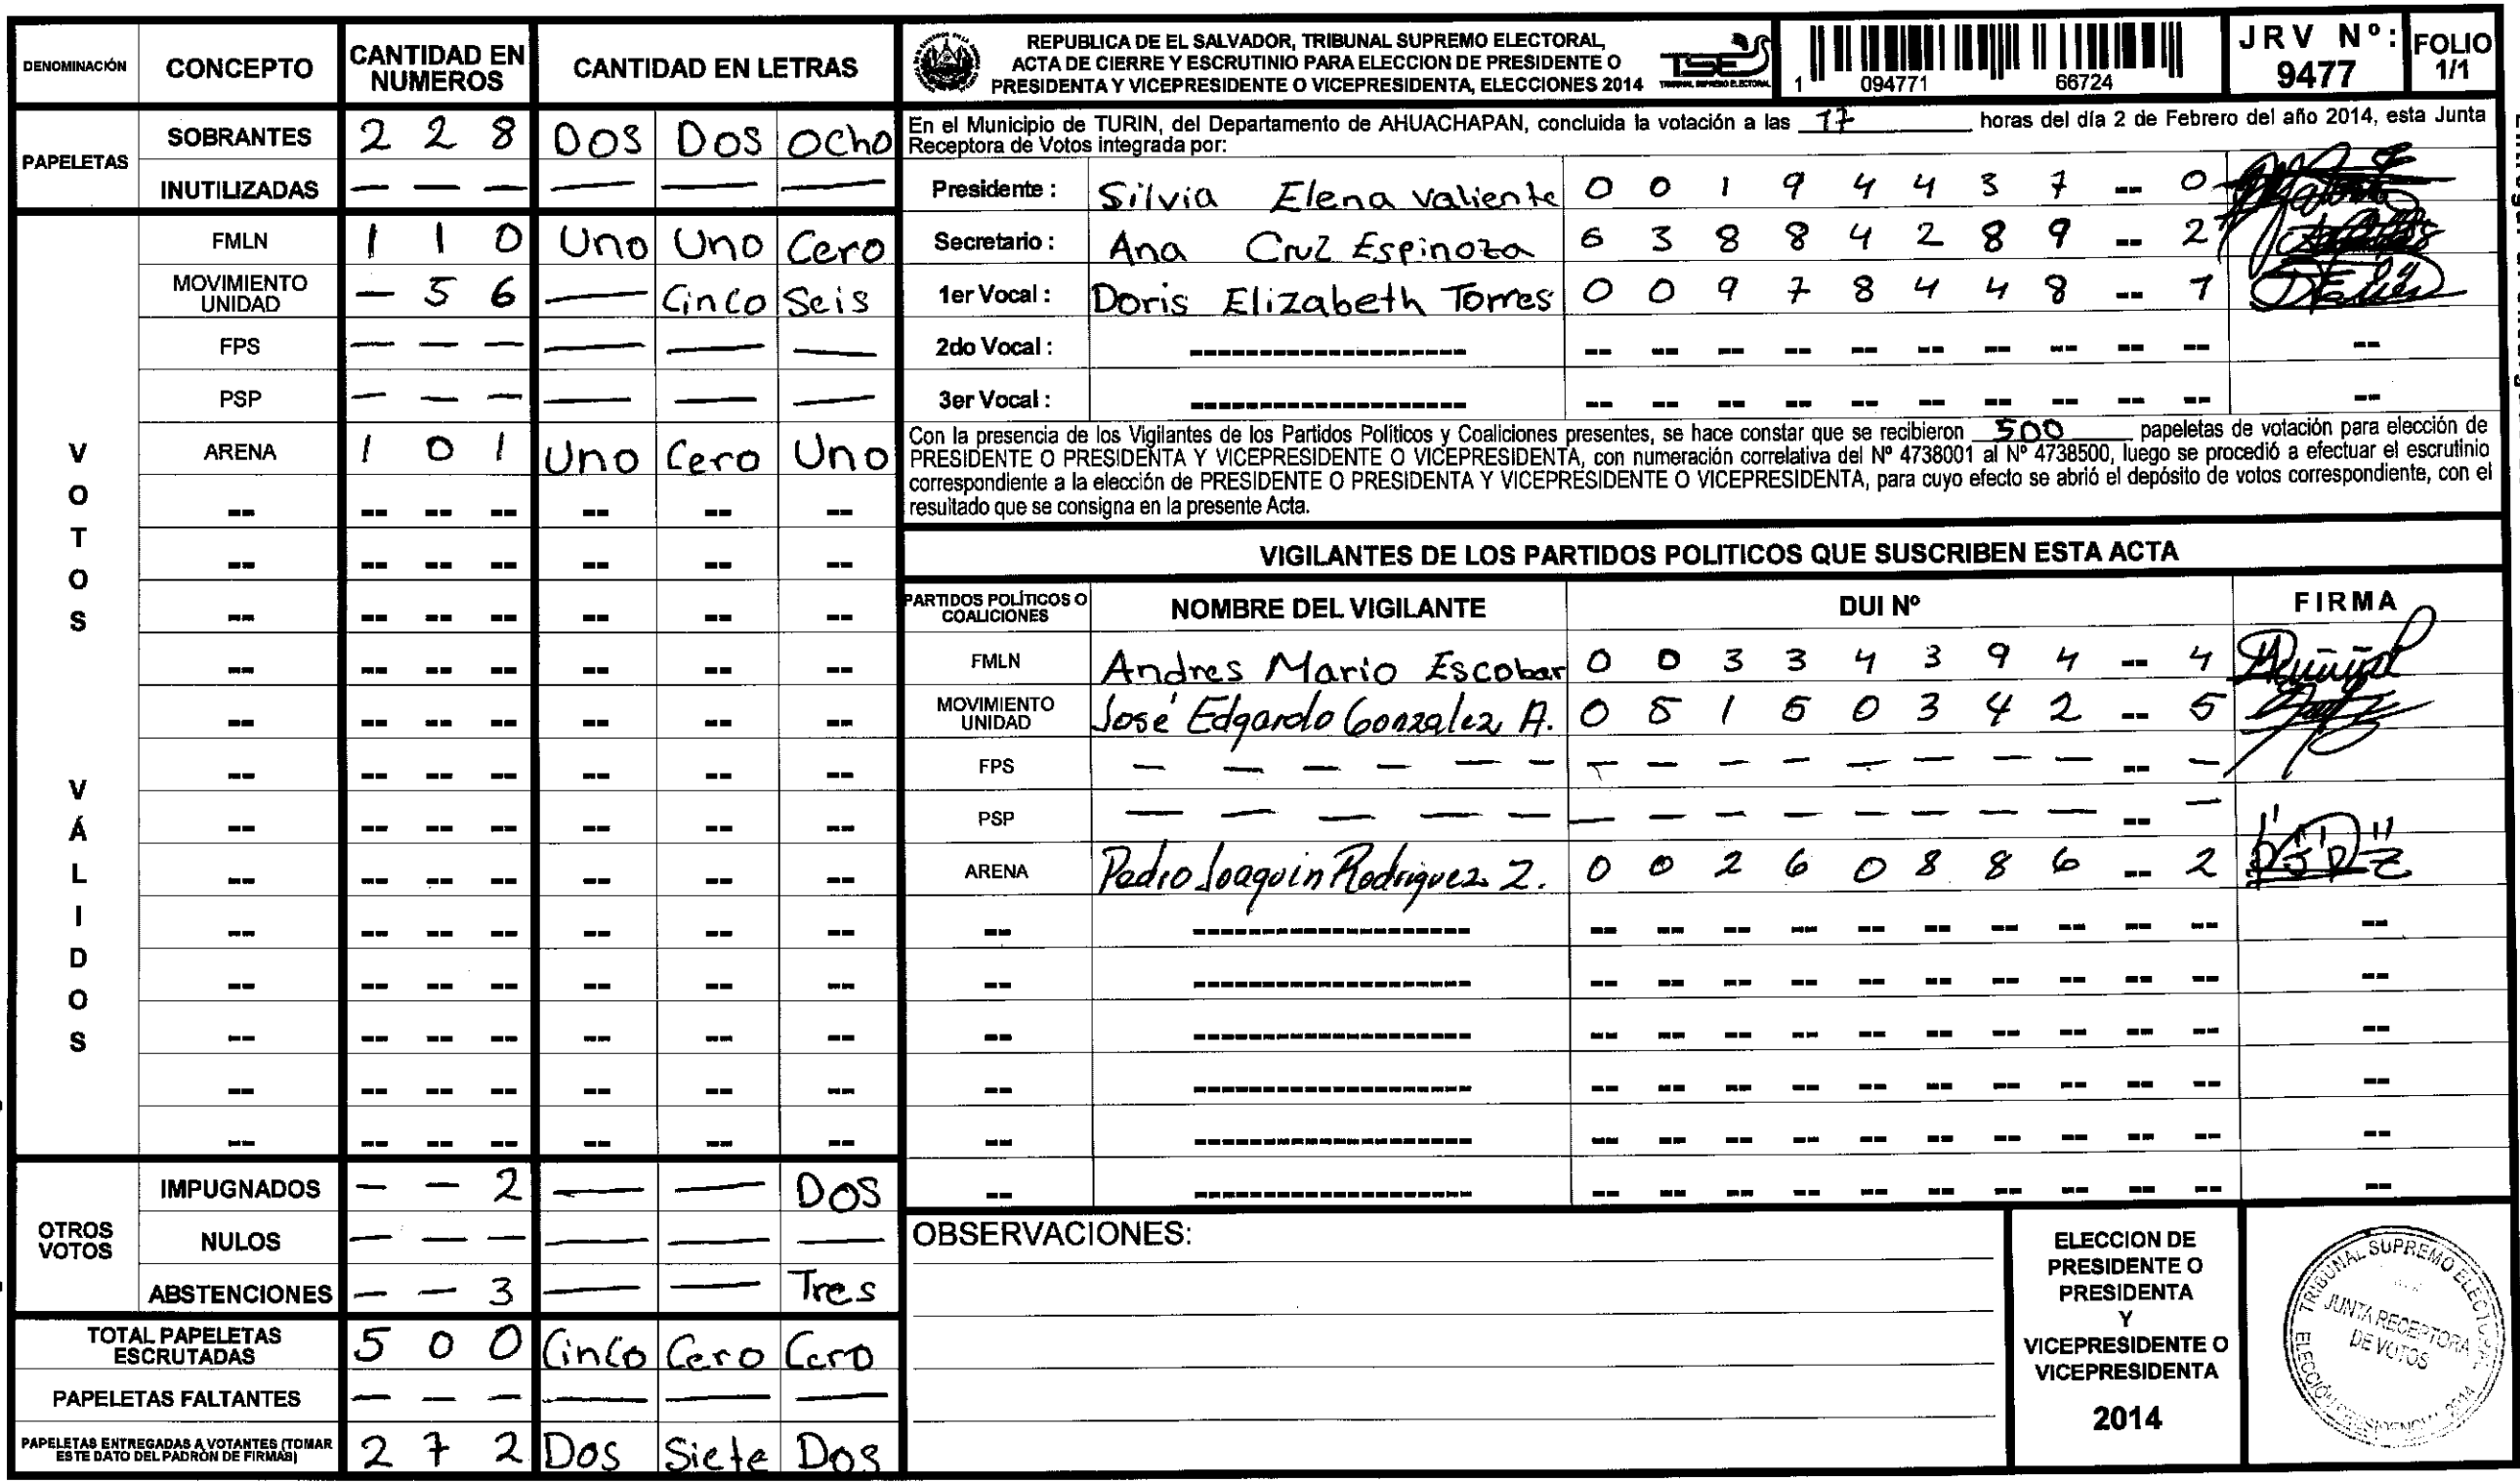 DENOMINACIÓN CONCEPTO CANTIDAD EN NUMEROS CANTIDAD EN LETRAS
PAPELETAS
SOBRANTES 2 2 8 DOS DOS OCHO
INUTILIZADAS — — — — — —
VOTOS VÁLIDOS
FMLN 1 1 0 Uno Uno Cero
MOVIMIENTO UNIDAD — 5 6 — Cinco Seis
FPS — — — — — —
PSP — — — — — —
ARENA 1 0 1 Uno Cero Uno
-- -- -- -- -- -- --
-- -- -- -- -- -- --
-- -- -- -- -- -- --
-- -- -- -- -- -- --
-- -- -- -- -- -- --
-- -- -- -- -- -- --
-- -- -- -- -- -- --
-- -- -- -- -- -- --
-- -- -- -- -- -- --
-- -- -- -- -- -- --
-- -- -- -- -- -- --
-- -- -- -- -- -- --
-- -- -- -- -- -- --
OTROS VOTOS
IMPUGNADOS — — 2 — — DOS
NULOS — — — — — —
ABSTENCIONES — — 3 — — Tres
TOTAL PAPELETAS ESCRUTADAS 5 0 0 Cinco Cero Cero
PAPELETAS FALTANTES — — — — — —
PAPELETAS ENTREGADAS A VOTANTES (TOMAR ESTE DATO DEL PADRÓN DE FIRMAS) 2 7 2 Dos Siete Dos
REPUBLICA DE EL SALVADOR, TRIBUNAL SUPREMO ELECTORAL,
ACTA DE CIERRE Y ESCRUTINIO PARA ELECCION DE PRESIDENTE O
PRESIDENTA Y VICEPRESIDENTE O VICEPRESIDENTA, ELECCIONES 2014
TSE
TRIBUNAL SUPREMO ELECTORAL
1 094771 66724
JRV Nº: 9477
FOLIO 1/1
En el Municipio de TURIN, del Departamento de AHUACHAPAN, concluida la votación a las 17 horas del día 2 de Febrero del año 2014, esta Junta
Receptora de Votos integrada por:
Presidente : Silvia Elena Valiente 0 0 1 9 4 4 3 7 -- 0
Secretario : Ana Cruz Espinoza 6 3 8 8 4 2 8 9 -- 2
1er Vocal : Doris Elizabeth Torres 0 0 9 7 8 4 4 8 -- 1
2do Vocal : -------------------- -- -- -- -- -- -- -- -- -- -- --
3er Vocal : -------------------- -- -- -- -- -- -- -- -- -- -- --
Con la presencia de los Vigilantes de los Partidos Políticos y Coaliciones presentes, se hace constar que se recibieron 500 papeletas de votación para elección de
PRESIDENTE O PRESIDENTA Y VICEPRESIDENTE O VICEPRESIDENTA, con numeración correlativa del Nº 4738001 al Nº 4738500, luego se procedió a efectuar el escrutinio
correspondiente a la elección de PRESIDENTE O PRESIDENTA Y VICEPRESIDENTE O VICEPRESIDENTA, para cuyo efecto se abrió el depósito de votos correspondiente, con el
resultado que se consigna en la presente Acta.
VIGILANTES DE LOS PARTIDOS POLITICOS QUE SUSCRIBEN ESTA ACTA
PARTIDOS POLÍTICOS O COALICIONES NOMBRE DEL VIGILANTE DUI Nº FIRMA
FMLN Andres Mario Escobar 0 0 3 3 4 3 9 4 -- 4
MOVIMIENTO UNIDAD José Edgardo Gonzalez A. 0 5 1 5 0 3 4 2 -- 5
FPS — — — — — — — — — — — — — — -- —
PSP — — — — — — — — — — — — — -- —
ARENA Pedro Joaquin Rodriguez Z. 0 0 2 6 0 8 8 6 -- 2
-- -------------------- -- -- -- -- -- -- -- -- -- -- --
-- -------------------- -- -- -- -- -- -- -- -- -- -- --
-- -------------------- -- -- -- -- -- -- -- -- -- -- --
-- -------------------- -- -- -- -- -- -- -- -- -- -- --
-- -------------------- -- -- -- -- -- -- -- -- -- -- --
-- -------------------- -- -- -- -- -- -- -- -- -- -- --
OBSERVACIONES:
ELECCION DE
PRESIDENTE O
PRESIDENTA
Y
VICEPRESIDENTE O
VICEPRESIDENTA
2014
TRIBUNAL SUPREMO ELECTORAL
JUNTA RECEPTORA
DE VOTOS
ELECCIÓN PRESIDENCIAL 2014